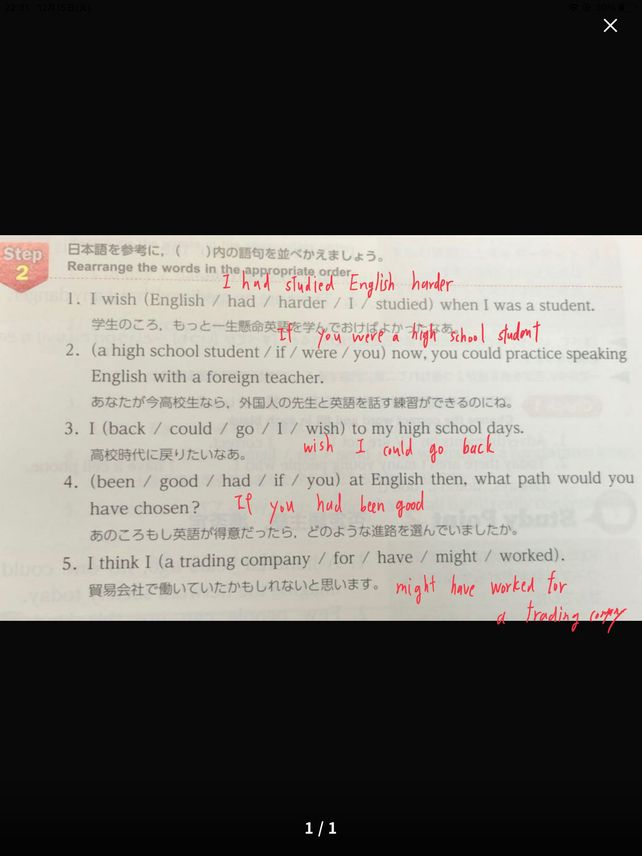 22:31 12月15日(火)
Step 2
日本語を参考に,( )内の語句を並べかえましょう。
Rearrange the words in the appropriate order.
I had studied English harder
1. I wish (English / had / harder / I / studied) when I was a student.
学生のころ,もっと一生懸命英語を学んでおけばよかったなあ。
If you were a high school student
2. (a high school student / if / were / you) now, you could practice speaking
English with a foreign teacher.
あなたが今高校生なら,外国人の先生と英語を話す練習ができるのにね。
3. I (back / could / go / I / wish) to my high school days.
高校時代に戻りたいなあ。
wish I could go back
4. (been / good / had / if / you) at English then, what path would you
have chosen?
If you had been good
あのころもし英語が得意だったら,どのような進路を選んでいましたか。
5. I think I (a trading company / for / have / might / worked).
貿易会社で働いていたかもしれないと思います。
might have worked for
a trading company
1 / 1